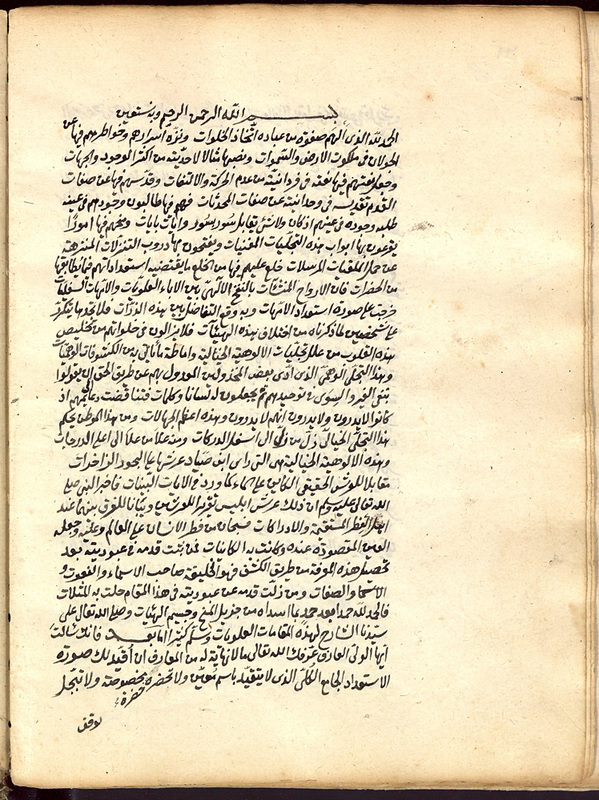 بسم الله الرحمن الرحيم وبه نستعين
الحمد لله الذى الهم صفوة من عباده اتخاذ الخلوات ونزه اسرارهم وخواطرهم فيها عن
الجولان فى ملكوت الارض والسموات ونصبها مثالا لاحديته من اكثر الوجود والجهات
وجعل نعتهم فيها نعته فى فردانيته من عدم الحركة والالتفات وقدسهم فيها عن صفات
القدم تقديسه فى وحدانيته عن صفات المحدثات فهم فيها طالبون وجودهم فى عينه
طلبه وجوده فى عينهم اذ كان ولا شئ تقابل سور بسور وايات بايات ومنحهم فيها امورا
يقرعون بها ابواب هذه التجليات الغيبيات ويفتحون بها دروب التنزلات المنزهة
عن حمل الملقيات المرسلات خلع عليهم فيها من الخلع ما يقتضيه استعداداتهم فيما يطابقها
من الحضرات فان الارواح المنشئات بالنفخ الالهى بين الاباء العلويات والامهات السفليات
خرجت على صورة استعداد الامهات وبه وقع التفاضل بين هذه الذرات فلا تجدها يتكرر
على شخصين لما ذكرناه من اختلاف هذه الهيئات فلا يزالون فى خلواتهم من تخليص
هذه القلوب من علل تجليات الالوهية الخيالية واماطة ما تاتى به من الكشوفات الوهميات
وهذا التجلى الوهمى الذى ادى بعض المخذولين المعدول بهم عن طريق الحق ان يقولوا
بنفى الغير والسوى فى توحيدهم ثم يجعلون لها لسانا وكلمات فتناقضت دعاويهم اذ
كانوا لا يدرون ولا يدرون انهم لا يدرون وهذه اعظم الجهالات ومن هذا الموطن بحكم
هذا التجلى الخيالى زل من زل الى اسفل الدركات ومنه علا من علا الى اعلى الدرجات
وهذه الالوهية الخيالية هى التى راى ابن صياد عرشها على البحور الزاخرات
مقابلا للعرش الحقيقى الكاين على الماء كما ورد فى الايات البينات فاخبر النبى صلى
الله تعالى عليه وسلم ان ذلك عرش ابليس تقريرا للعرشين وبيانا للفرق بينهما عند
اهل الفطر المستقيمة والادراكات فسبحان من فطر الانسان على العالم وعينه وجعله
العين المقصودة عنده وكانت به الكاينات فمن ثبت قدمه فى عبوديته بعد
تحصيل هذه المعرفة من طريق الكشف فهو الخليفة صاحب الاسماء والنعوت و
الاسما والصفات ومن زلت قدمه عن عبوديته فى هذا المقام حلت به المثلات
فالحمد لله حمدا بعد حمد بما اسداه من جزيل المنح وجسيم الهبات وصلى الله تعالى على
سيدنا الشارح لهذه المقامات العلويات وسلم كثيرا اما بعد فانك سالت
ايها الولى العارف عرفك الله تعالى ما لا نهاية له من المعارف ان اقيد لك صورة
الاستعداد الجامع الكلى الذى لا يتقيد باسم معين ولا تحضره مخصوصة ولا تتجلى
حضرة
توقف